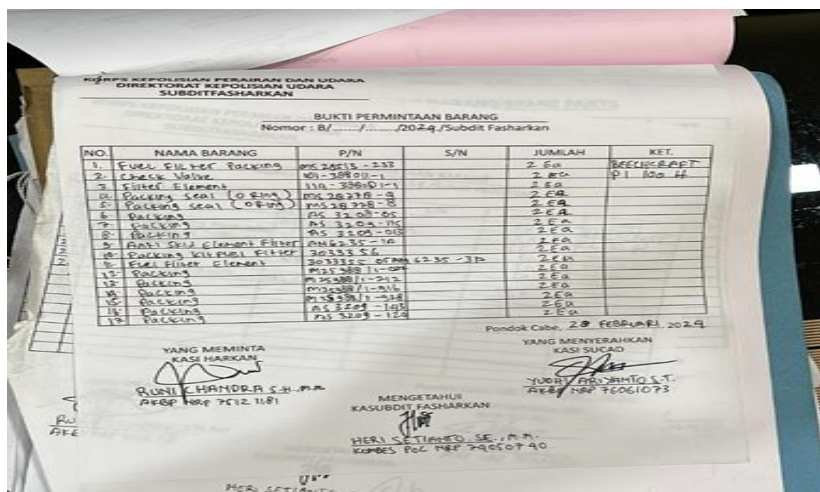 KORPS KEPOLISIAN PERAIRAN DAN UDARA
DIREKTORAT KEPOLISIAN UDARA
SUBDITFASHARKAN
BUKTI PERMINTAAN BARANG
Nomor : B/......./......./2024/Subdit Fasharkan
NO. NAMA BARANG P/N S/N JUMLAH KET.
1. Fuel Filter Packing MS 29513-233 2 Ea BEECHCRAFT
2. Check Valve 101-388011-1 2 Ea P1 100 H
3. Filter Element 2 Ea
4. Packing Seal (O Ring) MS 28778-4 2 EA
5. Packing Seal (O Ring) MS 28778-8 2 EA
6. Packing AS 3208-05 2 EA
7. Packing AS 3209 2 Ea
8. Packing AS 3209-013 2 Ea
9. Anti Skid Element Filter AN6235-1A 2 Ea
10. Packing Kit Fuel Filter 3033356 2 Ea
11. Fuel Filter Element 2 Ea
12. Packing 2 Ea
13. Packing M25988/1-212 2 Ea
14. Packing M25988/1-916 2 Ea
15. Packing M25988/1-928 2 Ea
16. Packing AS 3209-143 2 Ea
17. Packing AS 3209-124 2 Ea
Pondok Cabe, 28 FEBRUARI 2024
YANG MEMINTA
KASI HARKAN
YANG MENYERAHKAN
KASI SUCAD
RUNI CHANDRA S.H., M.M
AKBP NRP 75121181
YUDA ARIYANTO S.T.
AKBP NRP 76061073
MENGETAHUI
KASUBDIT FASHARKAN
HERI SETIANTO. SE., M.M.
KOMBES POL NRP 74050740
HERI SETIANTO